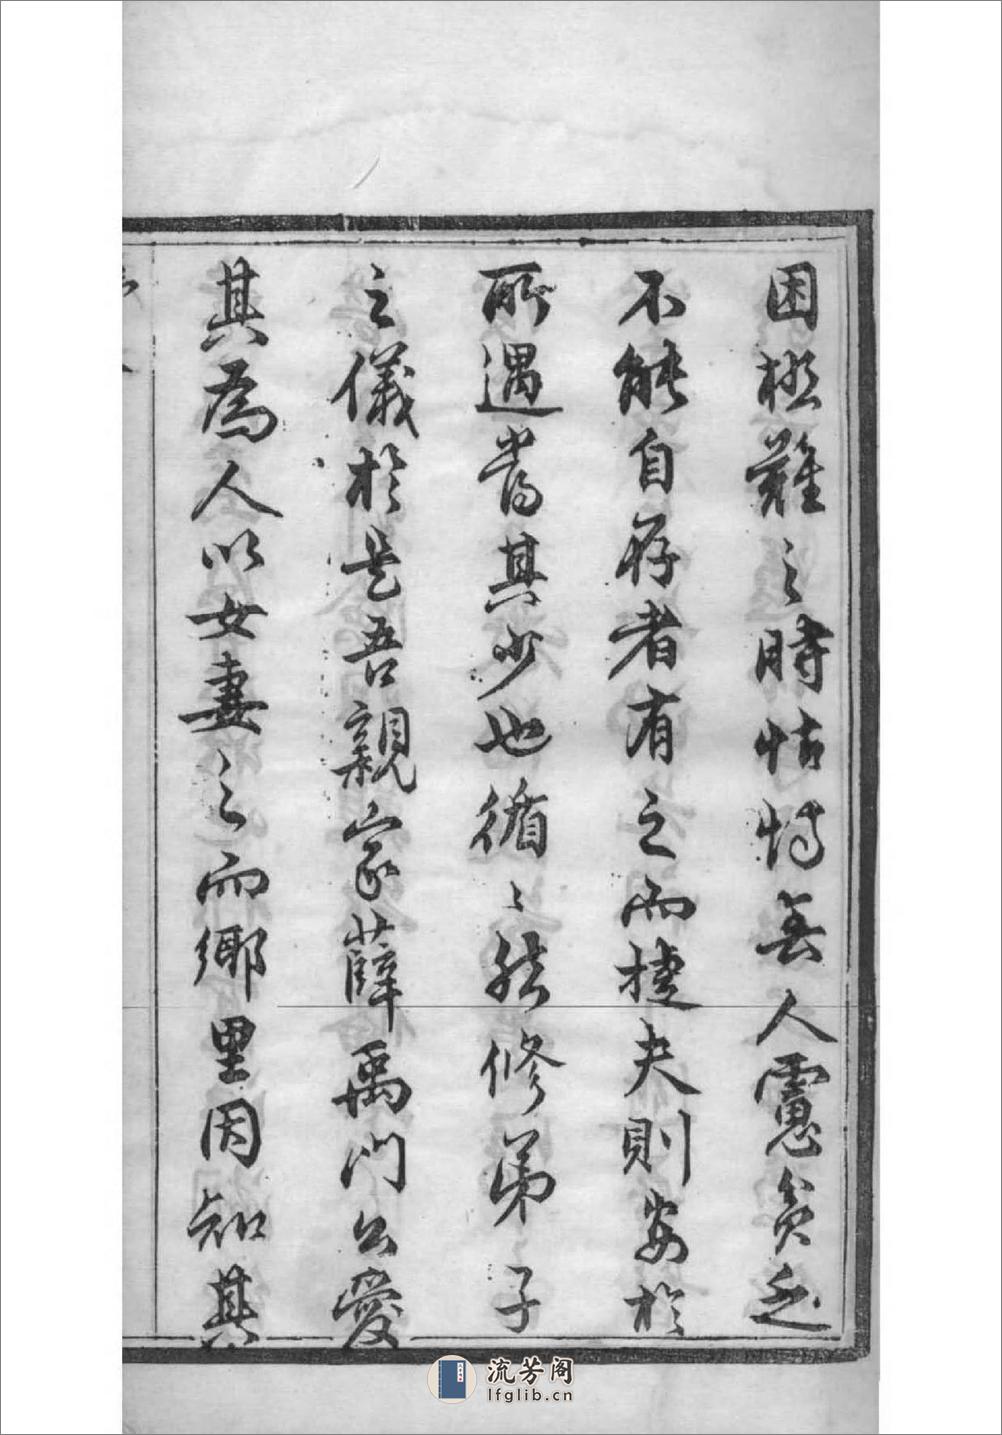 困極難之時怙恃無人慮貧乏
不能自存者有之而捷夫則安於
所遇當其少也循〻然修弟子
之儀於是吾親家薛禹門公愛
其為人以女妻之而鄉里因知其
流芳阁
lfglib.cn